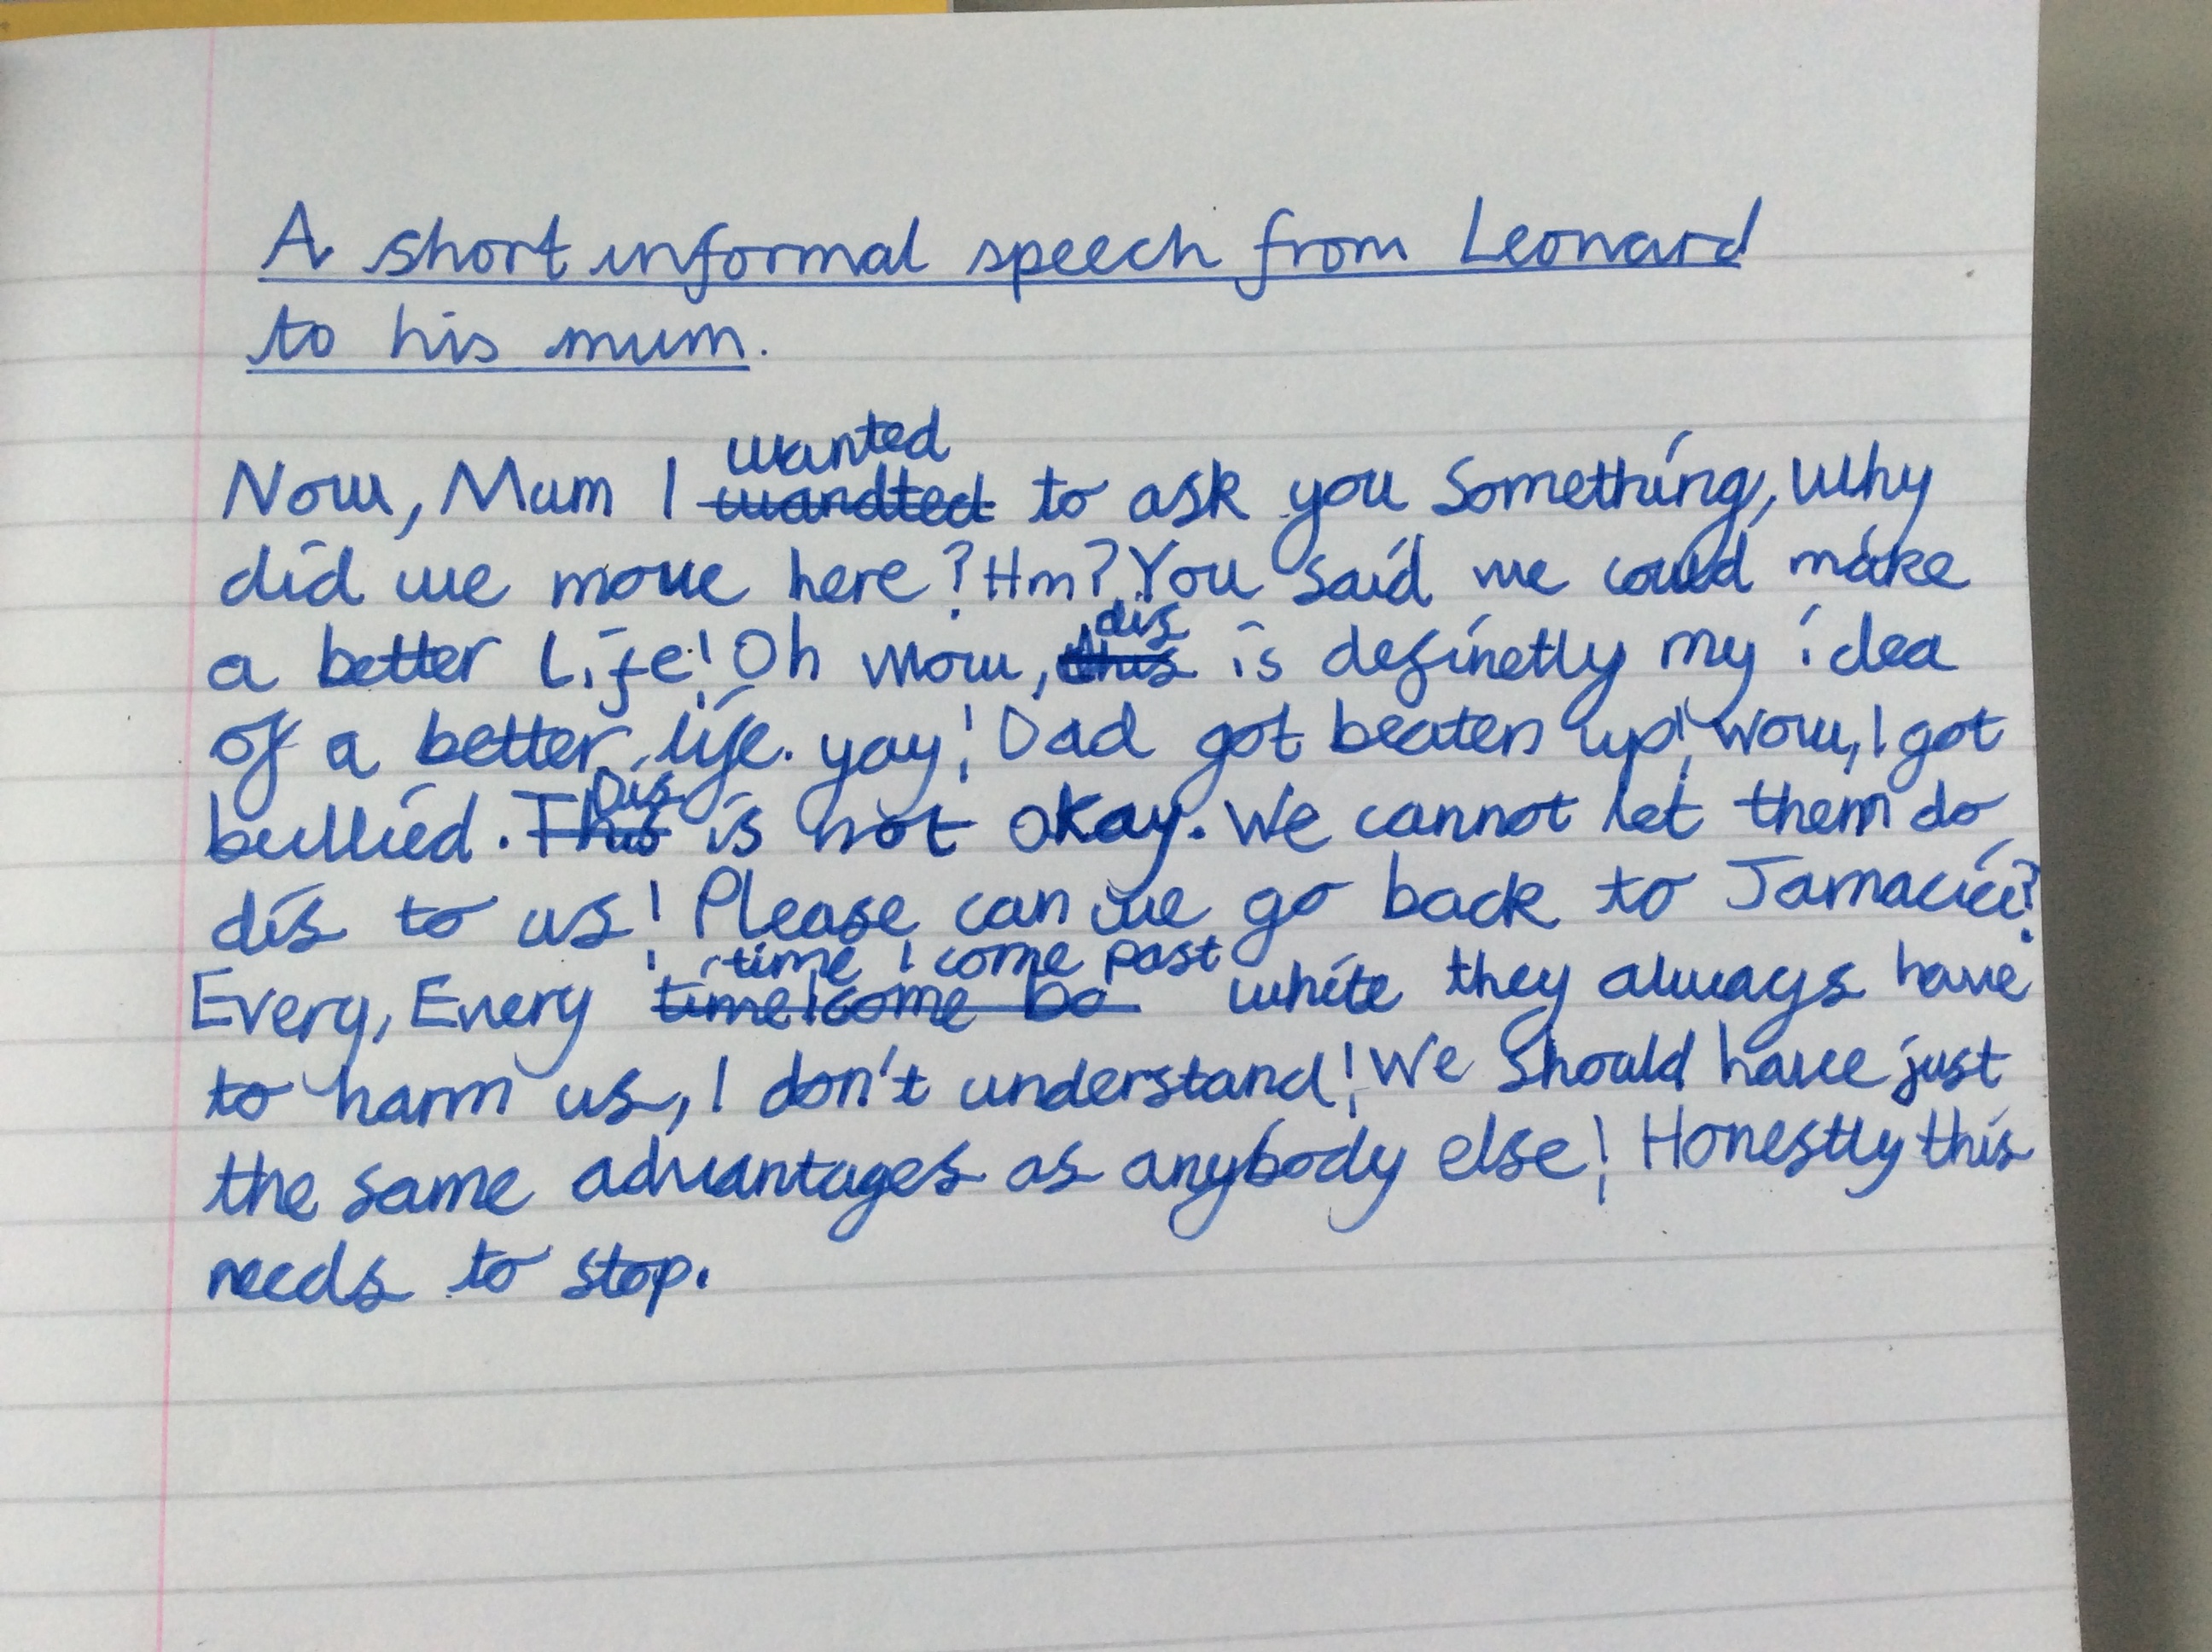 A short informal speech from Leonard
to his mum.
Now, Mum I wanted to ask you Something, Why
did we move here? Hm? You said we could make
a better Life! Oh wow, dis is definetly my idea
of a better life. yay! Dad got beaten up! wow, I got
bullied. Dis is not okay. We cannot let them do
dis to us! Please can we go back to Jamacia?
Every, Every time I come past white they always have
to harm us, I don't understand! We Should have just
the same advantages as anybody else! Honestly this
needs to stop.